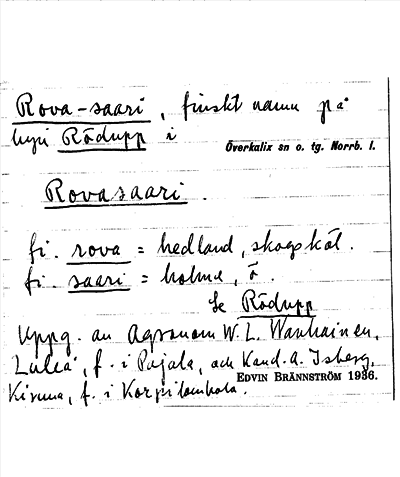 Rova-saari, finskt namn på
byn Rödupp i
Överkalix sn o. tg. Norrb. l.
Rovasaari.
fi. rova = hedland, skogskäl.
fi. saari = holme, ö.
Se Rödupp
Uppg. av Agronom W. L. Wanhainen,
Luleå, f. i Pajala, och Kand. A. Isberg,
EDVIN BRÄNNSTRÖM 1936.
Kiruna, f. i Korpilombolo.